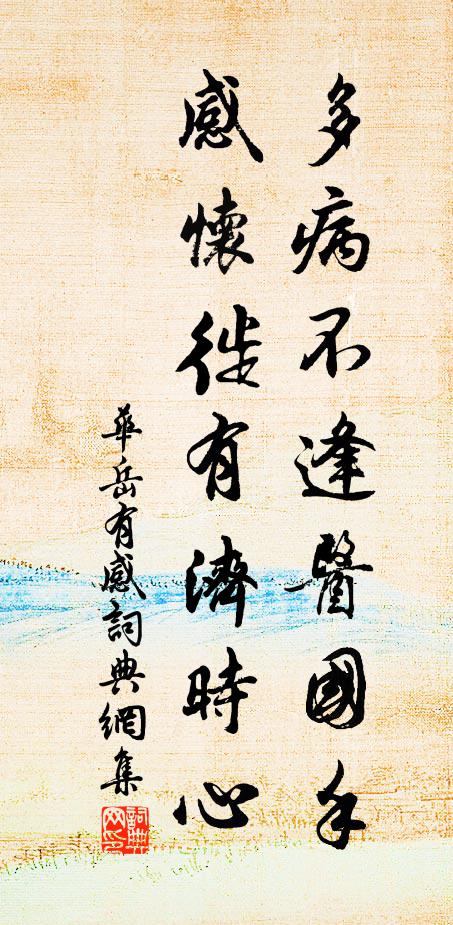 多病不逢醫國手
感懷徙有濟時心
華岳有感詞典網集
詞典
网